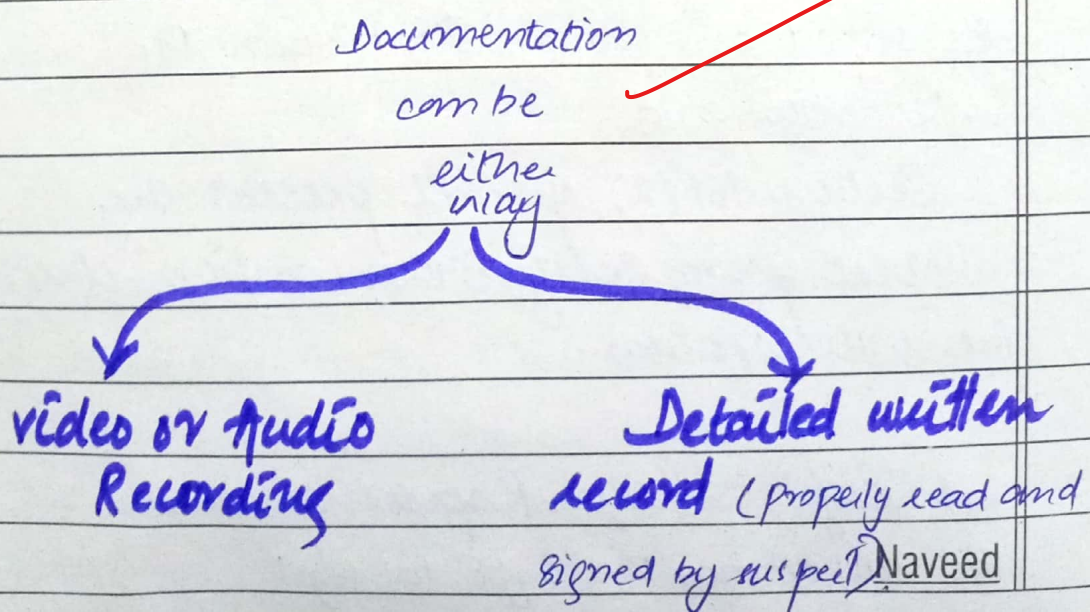 Documentation
can be
either
way
video or Audio
Recording
Detailed written
record (properly read and
signed by suspect)
Naveed